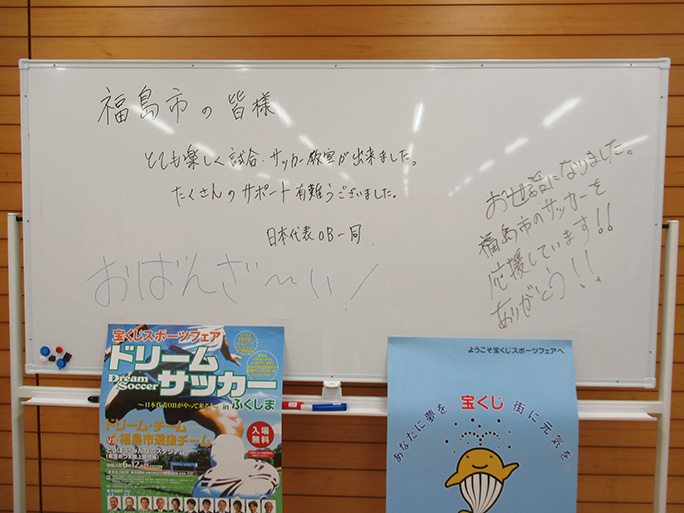 福島市の皆様
とても楽しく試合・サッカー教室が出来ました。
たくさんのサポート有難うございました。
日本代表OB一同
おばんざ〜い!
お世話になりました。
福島市のサッカーを
応援しています!!
ありがとう!!
宝くじスポーツフェア
ドリーム
Dream Soccer
サッカー
〜日本代表OBがやって来る!〜 in ふくしま
ドリーム・チーム
vs 福島市選抜チーム
入場無料
ようこそ宝くじスポーツフェアへ
あなたに夢を 宝くじ 街に元気を